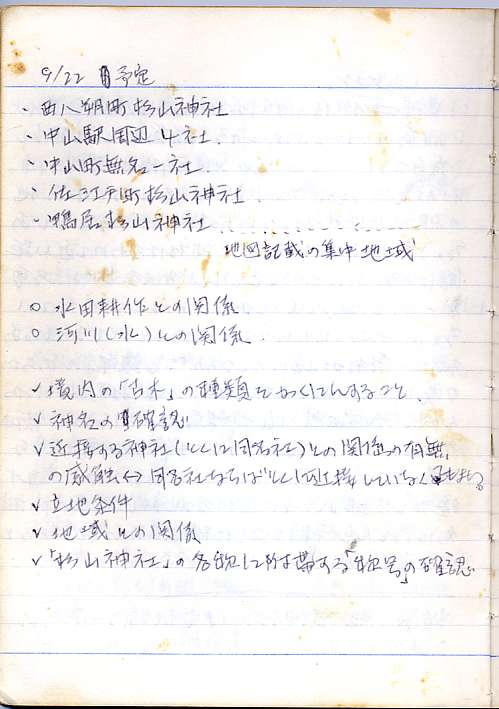 9/22 予定
・西八朔町杉山神社
・中山駅周辺4社.
・中山町無名一社.
・佐江戸町杉山神社.
・鴨居杉山神社
地図記載の集中地域
○水田耕作との関係
○河川(水)との関係.
✓境内の「古木」の種類をかくにんすること.
✓神名の確認
✓近接する神社(とくに同名社)との関係の有無
の感触↔同名社ならばとくに近接していなく
✓立地条件
✓地域との関係
✓「杉山神社」の名称に附帯する「称号」の確認